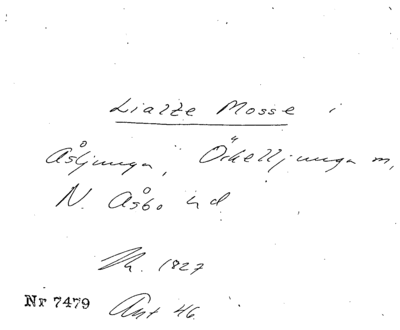 Lialte Mosse i
Åsljunga, Örkelljunga m,
N. Åsbo hd
Th. 1827
Nr 7479
Ant 46.